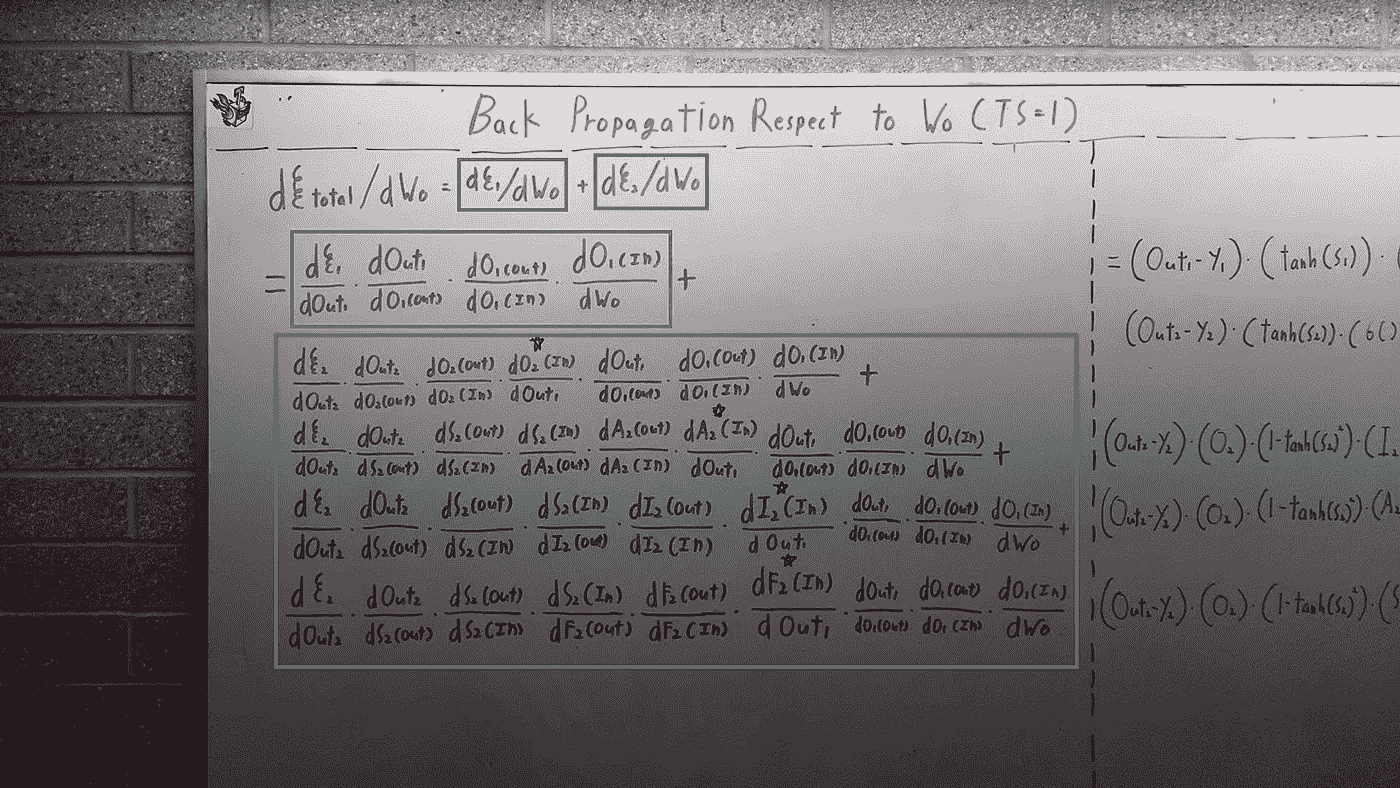 Back Propagation Respect to Wo (TS=1)
dξ total / dWo = dξ₁/dWo + dξ₂/dWo
= dξ₁/dOut₁ · dOut₁/dO₁(out) · dO₁(out)/dO₁(In) · dO₁(In)/dWo +
dξ₂/dOut₂ · dOut₂/dO₂(out) · dO₂(out)/dO₂(In) · dO₂(In)/dOut₁ · dOut₁/dO₁(out) · dO₁(out)/dO₁(In) · dO₁(In)/dWo +
dξ₂/dOut₂ · dOut₂/dS₂(out) · dS₂(out)/dS₂(In) · dS₂(In)/dA₂(out) · dA₂(out)/dA₂(In) · dA₂(In)/dOut₁ · dOut₁/dO₁(out) · dO₁(out)/dO₁(In) · dO₁(In)/dWo +
dξ₂/dOut₂ · dOut₂/dS₂(out) · dS₂(out)/dS₂(In) · dS₂(In)/dI₂(out) · dI₂(out)/dI₂(In) · dI₂(In)/dOut₁ · dOut₁/dO₁(out) · dO₁(out)/dO₁(In) · dO₁(In)/dWo +
dξ₂/dOut₂ · dOut₂/dS₂(out) · dS₂(out)/dS₂(In) · dS₂(In)/dF₂(out) · dF₂(out)/dF₂(In) · dF₂(In)/dOut₁ · dOut₁/dO₁(out) · dO₁(out)/dO₁(In) · dO₁(In)/dWo
= (Out₁-Y₁) · (tanh(S₁)) · (
(Out₂-Y₂) · (tanh(S₂)) · (6()
(Out₂-Y₂) · (O₂) · (1-tanh(S₂)²) · (I₂
(Out₂-Y₂) · (O₂) · (1-tanh(S₂)²) · (A₂
(Out₂-Y₂) · (O₂) · (1-tanh(S₂)²) · (